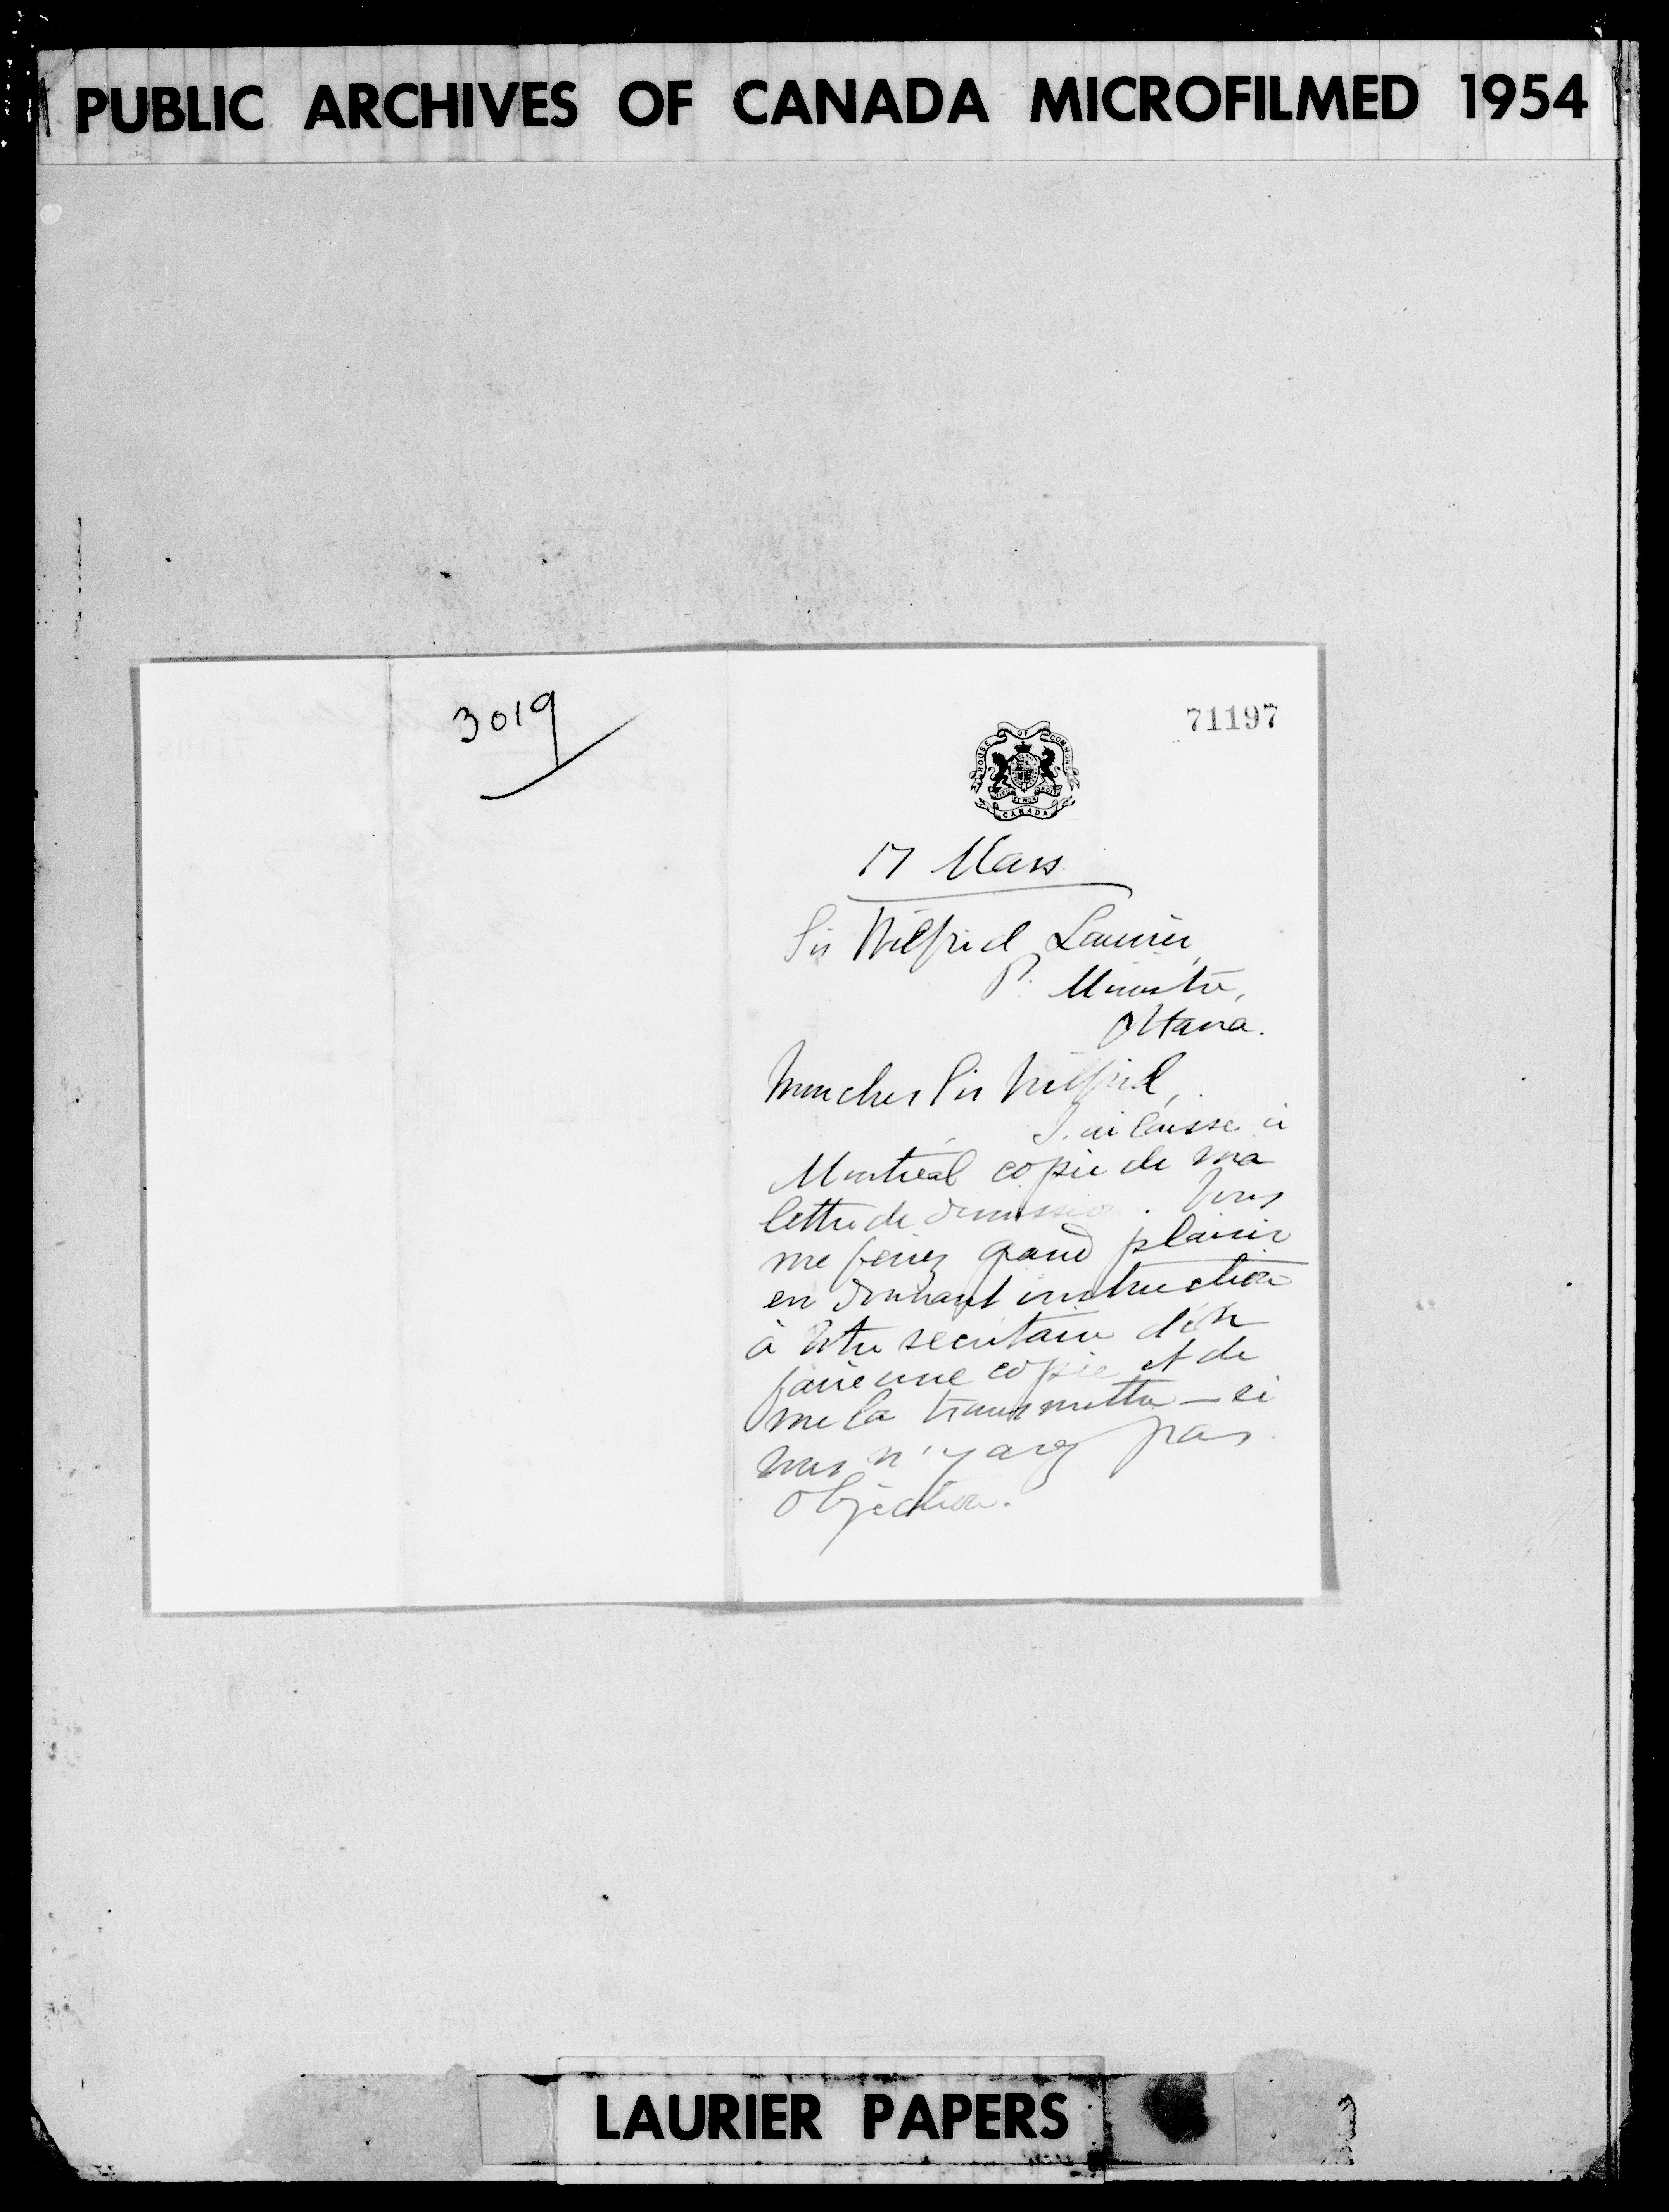 PUBLIC ARCHIVES OF CANADA MICROFILMED 1954
3019
71197
HOUSE OF COMMONS
DIEU ET MON DROIT
CANADA
17 Mars
Sir Wilfrid Laurier,
P. Ministre,
Ottawa.
Mon cher Sir Wilfrid,
J'ai laissé à
Montréal copie de ma
lettre de démission. Vous
me feriez grand plaisir
en donnant instruction
à votre secrétaire d'en
faire une copie et de
me la transmettre — si
vous n'y avez pas
objection.
LAURIER PAPERS